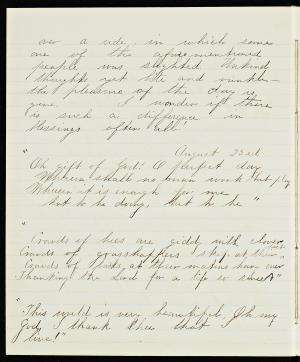 over a ride, in which some
one of the afore mentioned
people was slighted. Unkind
thoughts yet life and
the pleasure of the day is
gone. I wonder if there
is such a difference in
blessings after all!
August 23rd
"Oh gift of God! O perfect day
Wherein shall no man work but play
Wherein it is enough for me
Not to be doing, but to be"
"Crowds of bees are giddy with clover
Crowds of grasshoppers skip at their feet
Crowds of larks at their matins hang over
Thanking the Lord for a life so sweet"
"This world is very beautiful, Oh my
God, I thank Thee that I
live!"